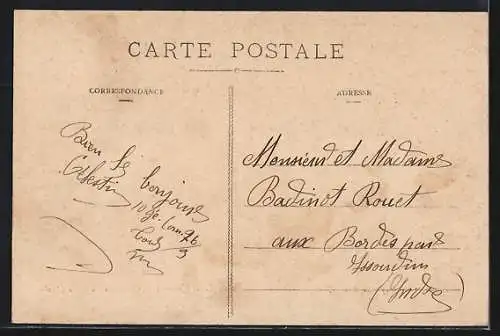 CARTE POSTALE
CORRESPONDANCE
ADRESSE
Bien le bonjour
Célestin
Monsieur et Madame
Badinot Rouet
aux Bordes par
Issoudun
(Indre)